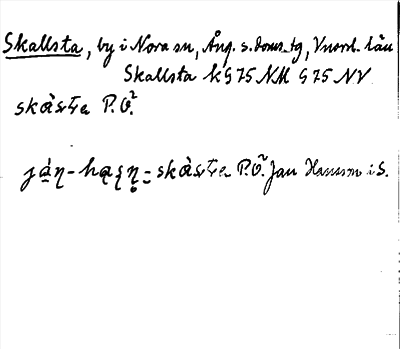 Skallsta, by i Nora sn, Ång. s. doms. tg, Vnorrl. län
Skallsta k G 75 NM G 75 NV
skàs̀ta P.O².
ján-hasn-skàsta P.O². Jan Hansson i S.